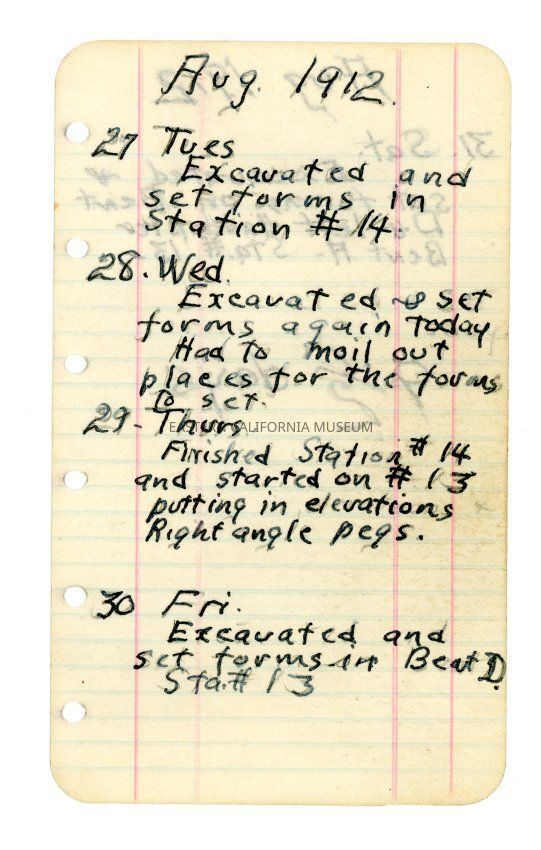 Aug. 1912.
27 Tues
Excavated and
set forms in
Station # 14.
28. Wed.
Excavated & set
forms again today
Had to moil out
places for the forms
to set.
29 - Thurs
EASTERN CALIFORNIA MUSEUM
Finished Station # 14
and started on # 13
putting in elevations
Right angle pegs.
30 Fri.
Excavated and
set forms in Bent D.
Sta. # 13